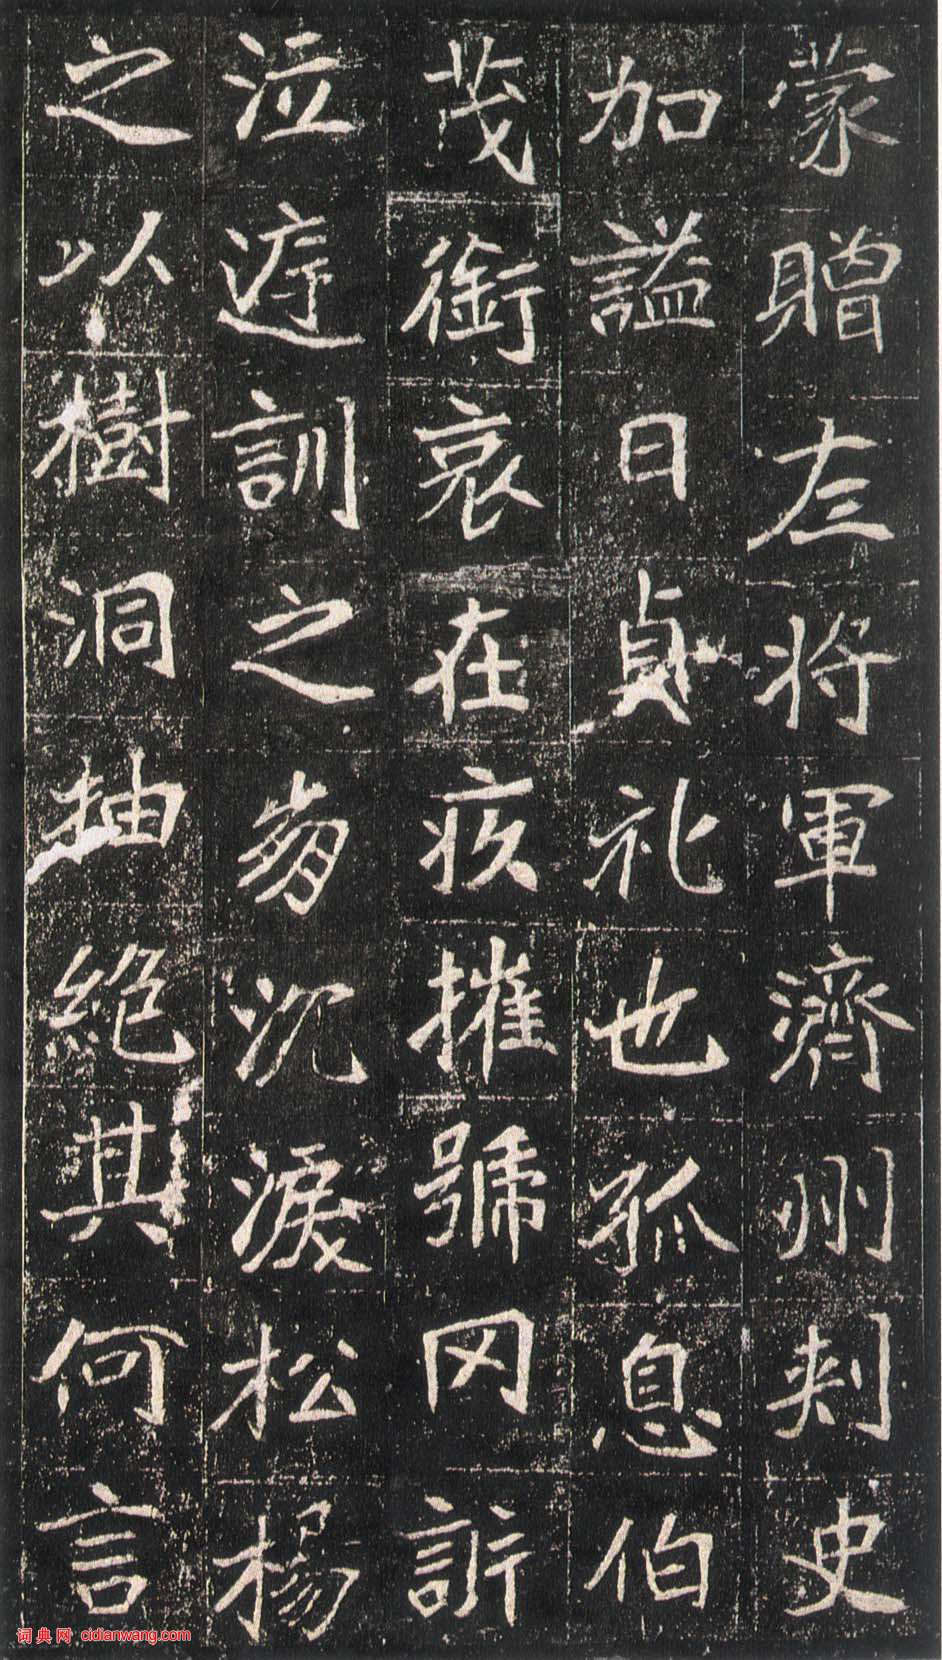 蒙贈左将軍濟州刺史
加謚日貞礼也孤息伯
茂銜哀在疚摧號罔訴
泣遵訓之崩沉淚松楊
之以樹洞抽絶其何言
词典网 cidianwang.com